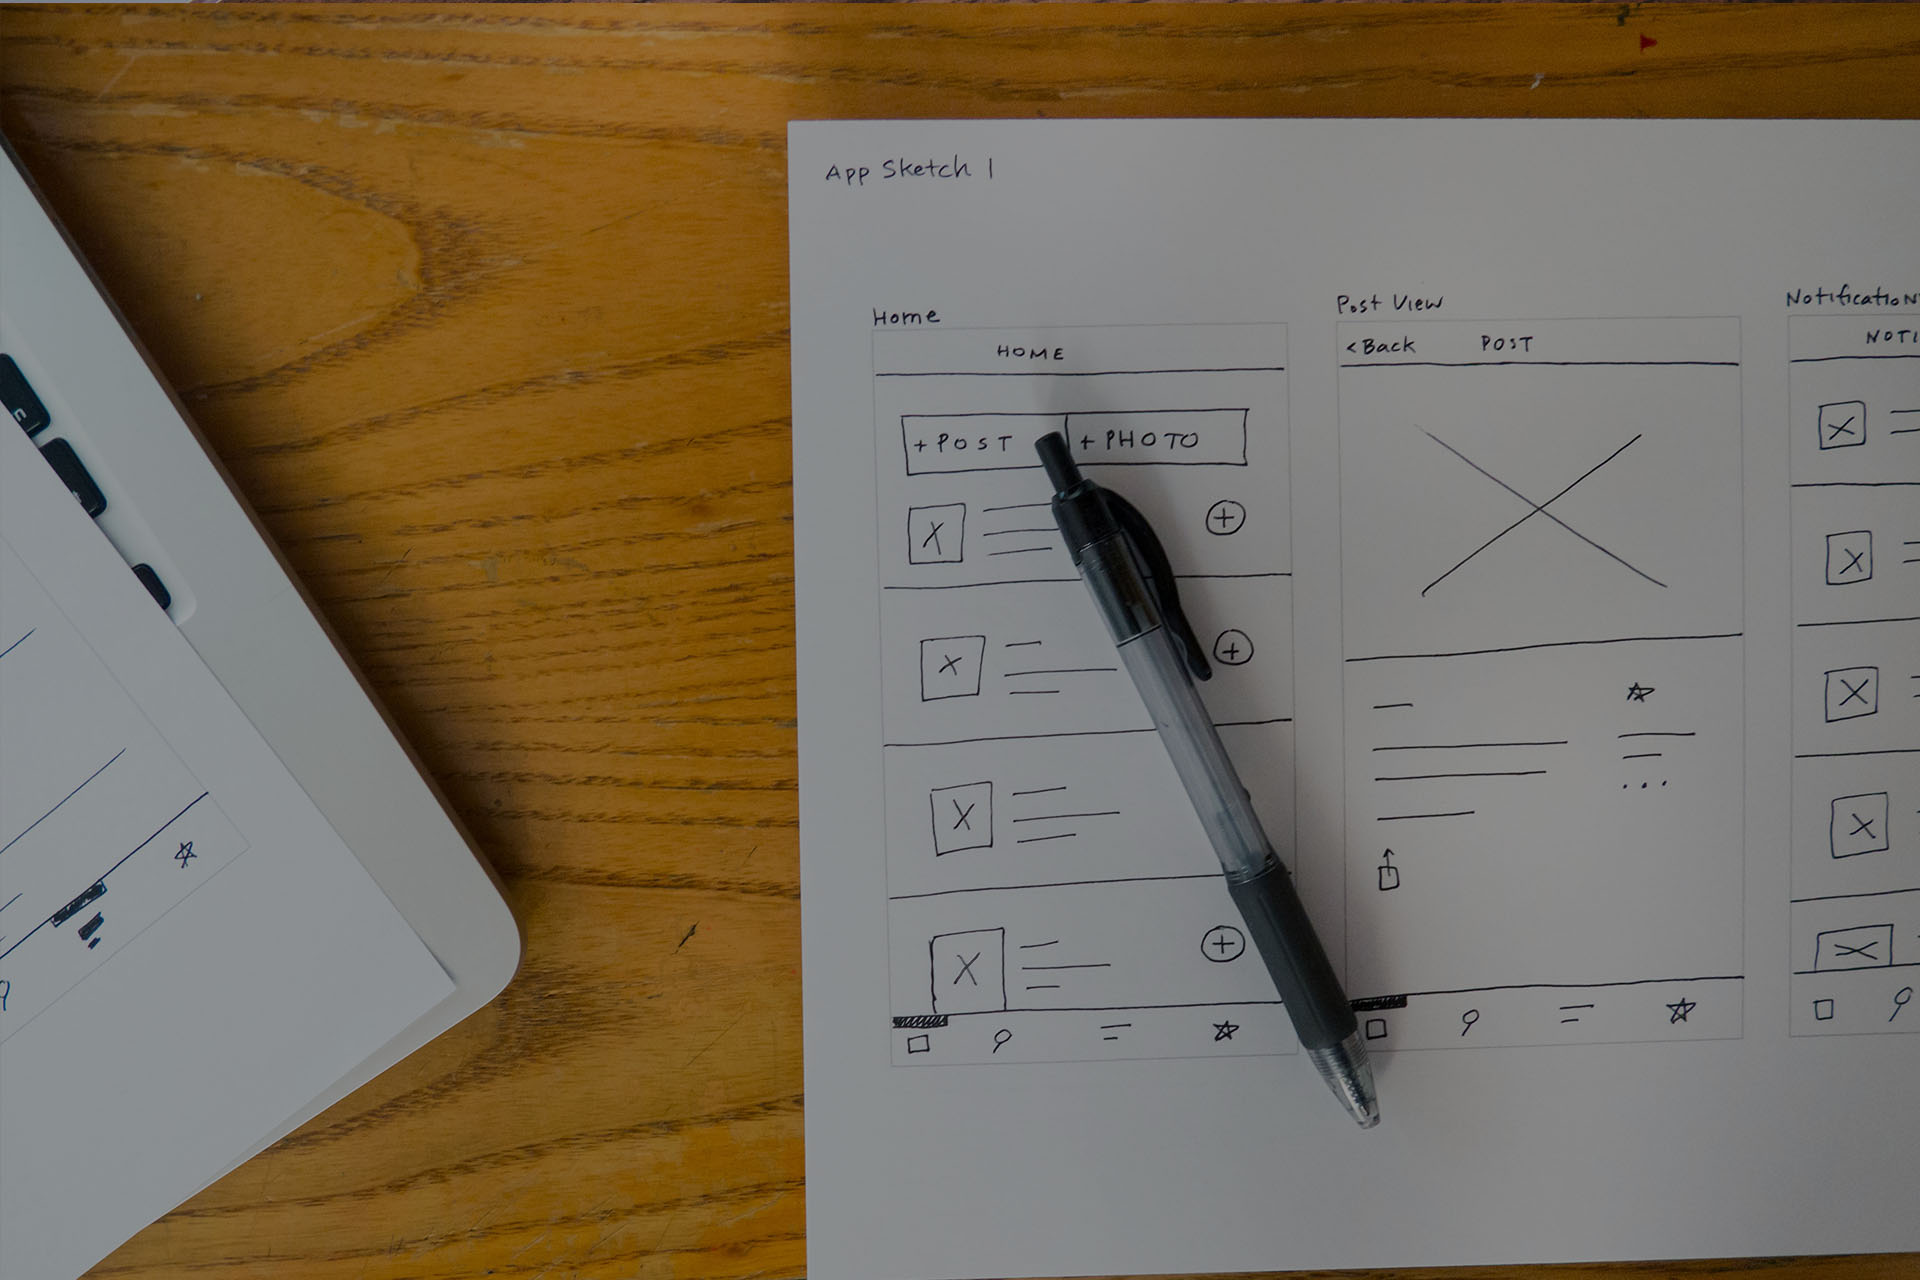 App Sketch 1
Home
HOME
+ POST
+ PHOTO
Post View
< Back
POST
Notification
NOTI